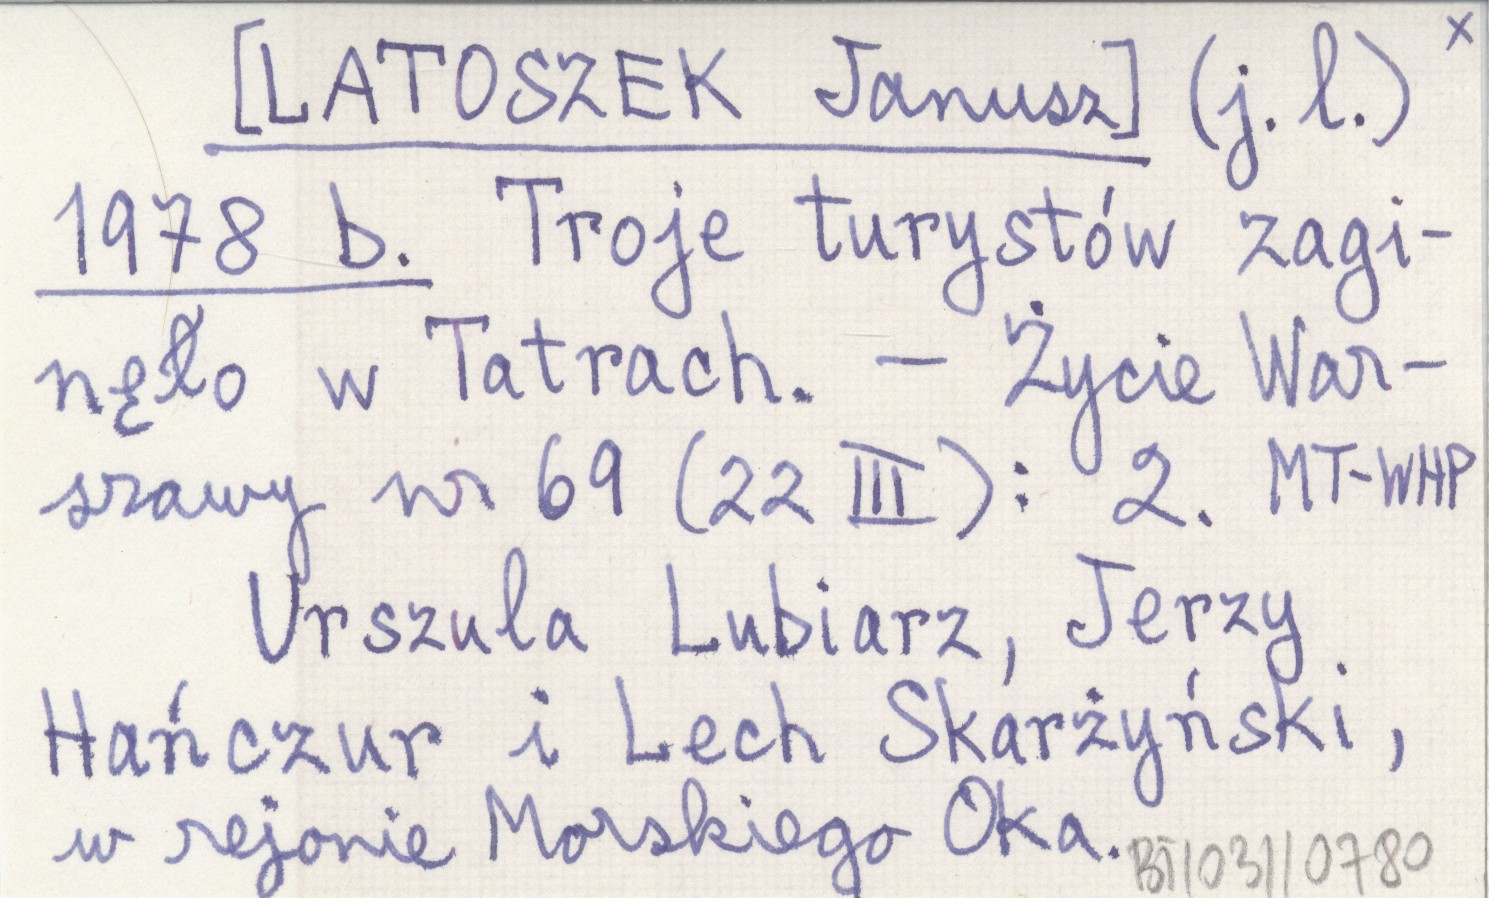 [LATOSZEK Janusz] (j. l.) x
1978 b. Troje turystów zagi-
nęło w Tatrach. – Życie War-
szawy nr 69 (22 III): 2. MT-WHP
Urszula Lubiarz, Jerzy
Hańczur i Lech Skarżyński,
w rejonie Morskiego Oka.
BT/031/0780